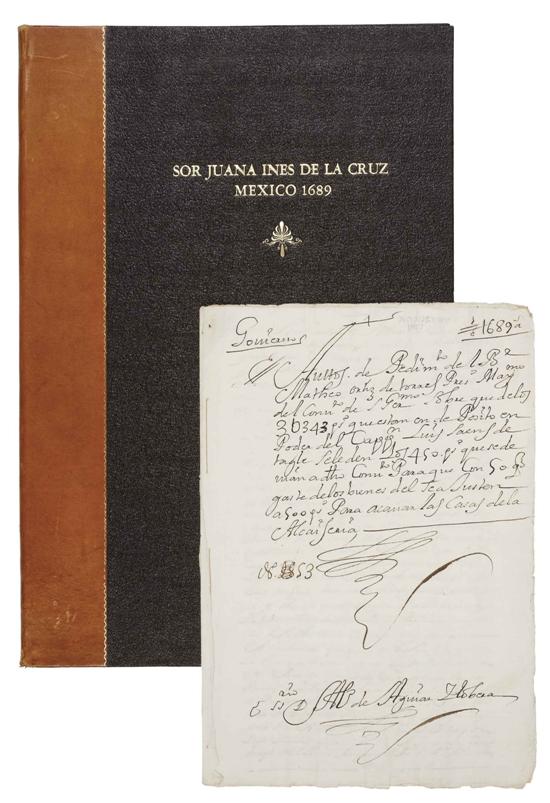 SOR JUANA INES DE LA CRUZ
MEXICO 1689
Goviernos
1689 a
Autos de Pedimto del Br
Matheo ortiz de torres Presro Maymo
del Convto de Sn Germo sobre que de los
3U343 ps que estan en de Posito en
Poder del Cappn Luis Saens de
tagle sele den Los 450 ps que se de
vian a dho Convto Para que Con 50 ps
gaste de los bienes del
a 500 ps Para acavar las Casas de la
Alcaiseria
53
de Aguiar